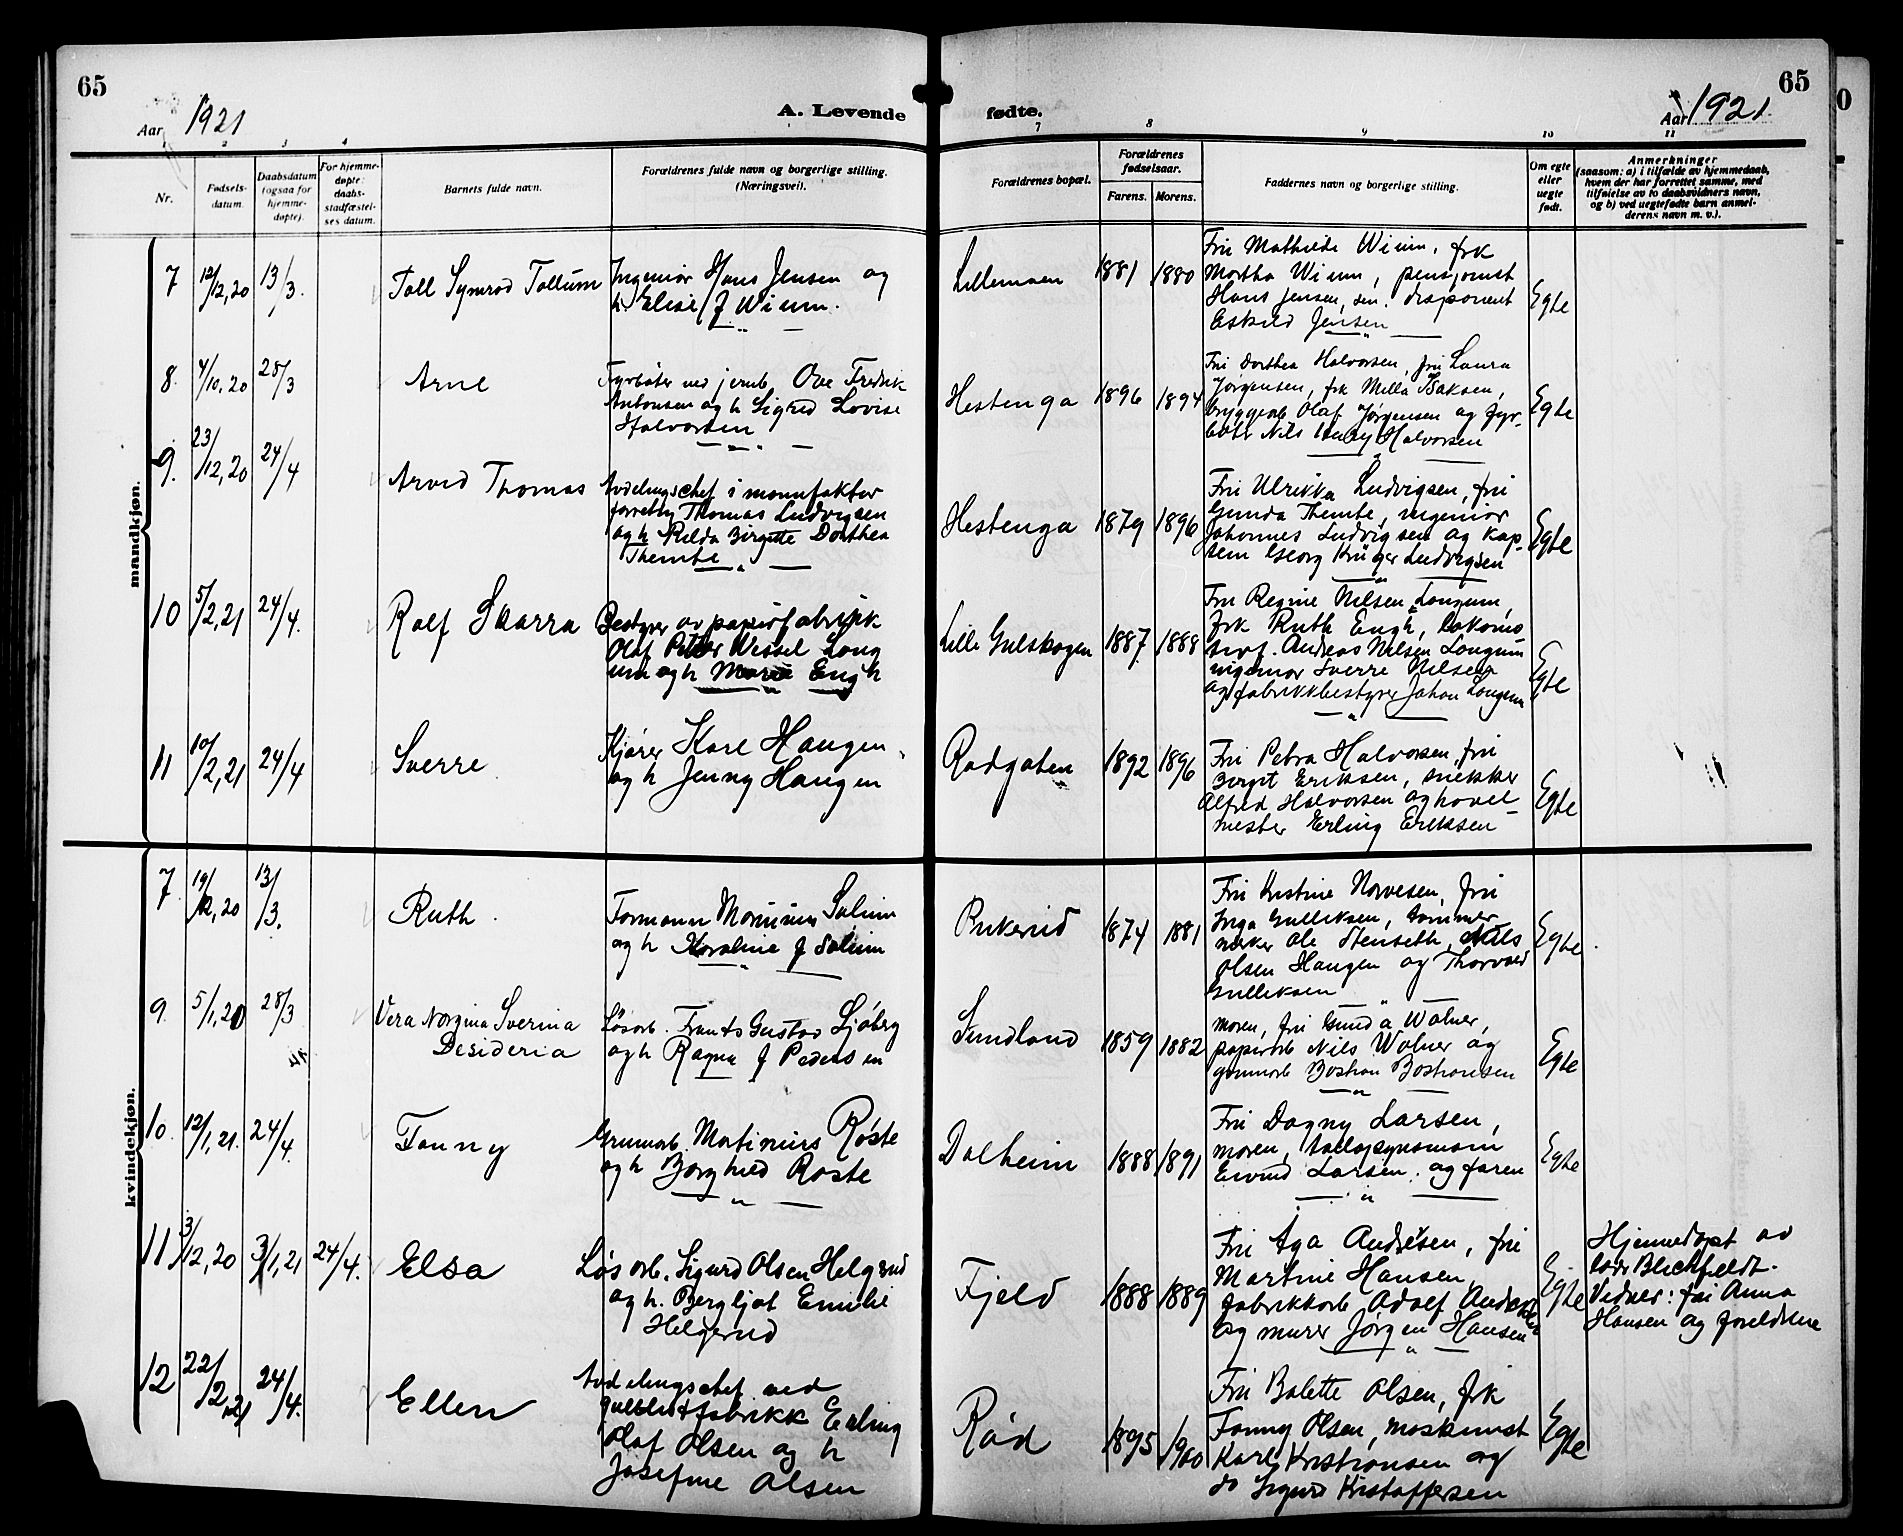 65
Aar 1921
A. Levende
fødte.
65
Aar 1921.
1 2 3 4
7 8 9 10 11
Nr.
Fødsels-
datum.
Daabsdatum
(ogsaa for
hjemme-
døpte).
For hjemme-
døpte:
daabs-
stadfæstel-
ses datum.
Barnets fulde navn.
Forældrenes fulde navn og borgerlige stilling.
(Næringsvei).
Forældrenes bopæl.
Forældrenes
fødselsaar.
Farens. Morens.
Faddernes navn og borgerlige stilling.
Om egte
eller
uegte
født.
Anmerkninger
(saasom: a) i tilfælde av hjemmedaab,
hvem der har forrettet samme, med
tilføielse av to daabsvidners navn,
og b) ved uegtefødte barn anmel-
derens navn m. v.).
mandkjøn.
7 12/12,20 13/3.
Ingeniør Hans Jensen og
h. Elise f Wium.
Lillemoen 1881 1880
Fru Mathilde Wium, frk
Martha Wium, pensjonist
Hans Jensen, sen. disponent
Eskild Jensen
Egte
8. 4/10,20 28/3
Arne
Fyrbøter ved jernb. Ove Fredrik
Antonsen og h Sigrid Lovise
Halvorsen
Hestenga 1896 1894
Fru Dorthea Halvorsen, fru Laura
Jørgensen, frk Milla Isaksen,
bryggearb Olaf Jørgensen og fyr-
bøter Nils Halvorsen
Egte
9. 23/12,20 24/4
Arvid Thomas
Avdelingschef i manufaktur
forretng Thomas Ludvigsen
og h Hilda Birgitte Dorthea
Themte
Hestenga 1879 1896
Fru Ulrikka Ludvigsen, fru
Gunda Themte, ingeniør
Johannes Ludvigsen og kap-
tein Georg Krüger Ludvigsen
Egte
10 5/2,21 24/4.
Rolf Skarra
Bestyrer av papirfabrikk
Olaf Peter Wessel Long
um og h Marie Engh
Lille Gulskogen 1887 1888
Fru Regine Nilsen Longum,
frk Ruth Engh, lokomo-
tivf. Andreas Nilsen Longum
ingeniør Sverre Nilsen
og fabrikkbestyrer Johan Longum
Egte
11 10/2,21 24/4
Sverre
Kjører Karl Haugen
og h Jenny Haugen
Rødgaten 1892 1896
Fru Petra Halvorsen, fru
Birgit Eriksen, snekker
Alfred Halvorsen og hovel-
mester Erling Eriksen
Egte
kvindekjøn.
7 19/12,20 13/3.
Ruth.
Formann Solum
og h Karoline f Solum
1874 1881
Fru Kristine Norvesen, fru
Inga Gulliksen, tømmer
merker Ole Stenseth, Nils
Olsen Haugen og Thorvald
Gulliksen
Egte
9. 5/1,20 28/3
Vera Norgina Sverina
Desideria
Løsarb. Frants Gustav Sjøberg
og h Ragna f Pedersen
Sundland 1859 1882
Moren, fru Gunda Walner,
papirarb Nils Walner og
grunnarb Bastian Bastiansen
Egte
10. 12/1,21. 24/4.
Fanny
Grunnarb. Martinius Røste
og h Borghild Røste
Dalheim 1888 1891
Fru Dagny Larsen,
moren,
Eivind Larsen. og faren
Egte
11 3/12,20 3/1,21 24/4.
Elsa
Løsarb. Sigurd Olsen Helgerud
og h. Bergljot Emilie
Helgerud
Fjeld 1888 1889
Fru Aga Andresen, fru
Martine Hansen,
fabrikkarb Adolf Andresen
og murer Jørgen Hansen
Egte
Hjemmedøpt av
Blichfeldt.
Vidner: fru Anna
Hansen og foreldrene
12 22/2,21 24/4.
Ellen
Avdelingschef ved
gullistfabrikk Erling
Olaf Olsen og h
Josefine Olsen
Rød 1895 1900
Fru Balette Olsen, frk
Fanny Olsen, maskinist
Karl Kristiansen og
do Sigurd Kristoffersen
Egte